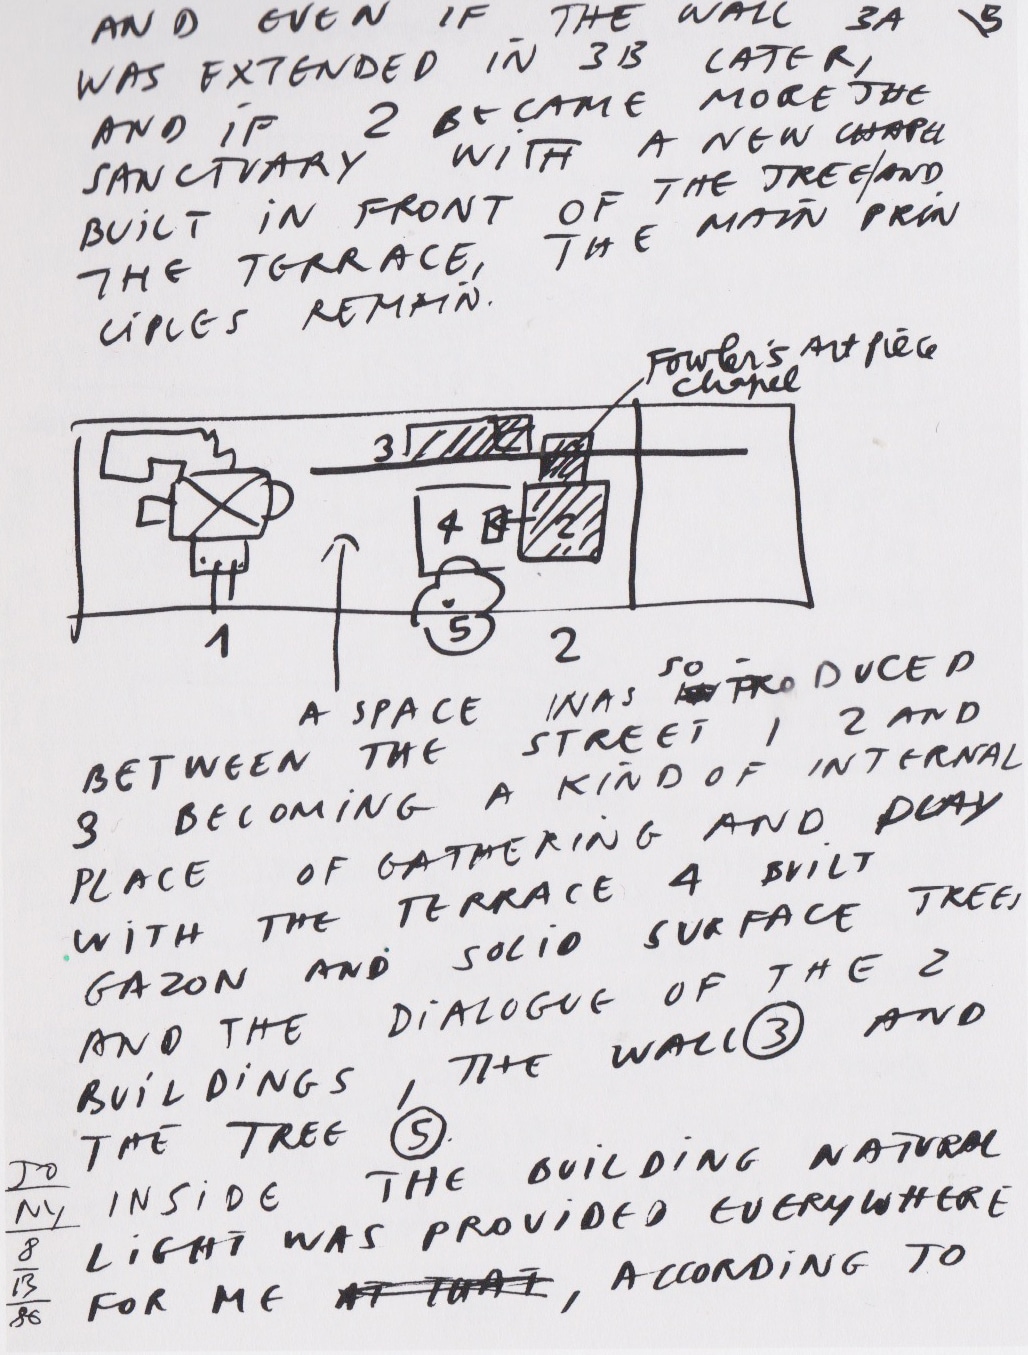 AND EVEN IF THE WALL 3A
WAS EXTENDED IN 3B LATER,
AND IF 2 BECAME MORE THE
SANCTUARY WITH A NEW CHAPEL
BUILT IN FRONT OF THE TREE/AND
THE TERRACE, THE MAIN PRIN
CIPLES REMAIN.
Fowler's Art piece
chapel
3
4
2
5
1
2
A SPACE WAS SO PRODUCED
BETWEEN THE STREET 1 2 AND
3 BECOMING A KIND OF INTERNAL
PLACE OF GATHERING AND PLAY
WITH THE TERRACE 4 BUILT
GAZON AND SOLID SURFACE TREES
AND THE DIALOGUE OF THE 2
BUILDINGS, THE WALL 3 AND
THE TREE 5.
INSIDE THE BUILDING NATURAL
LIGHT WAS PROVIDED EVERYWHERE
FOR ME AT THAT, ACCORDING TO
NY
8
13
86